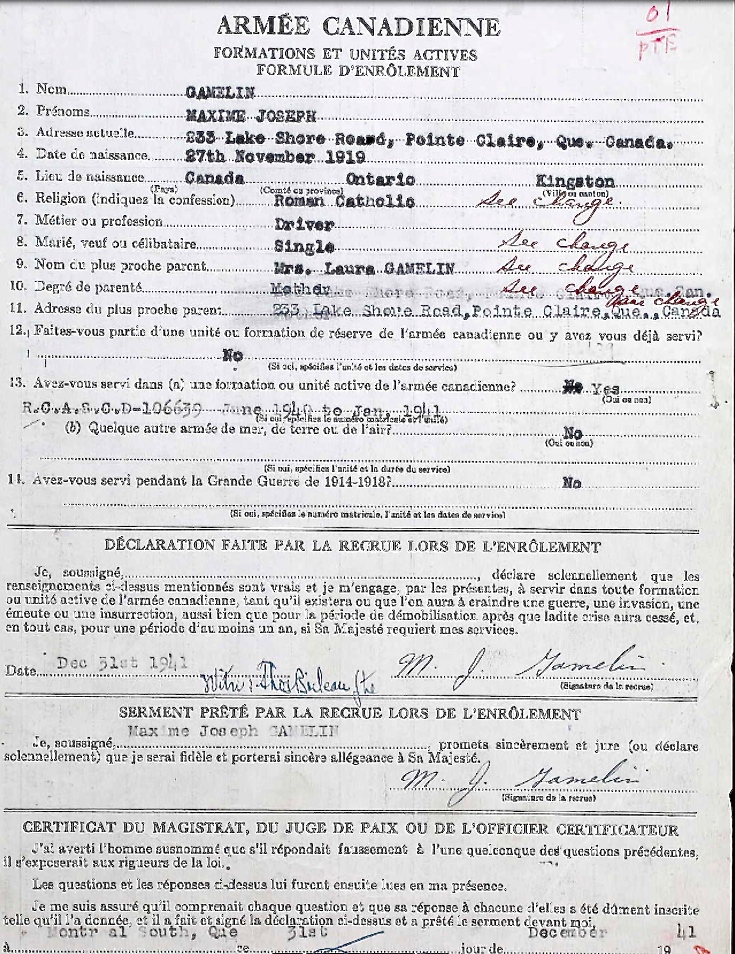 01
PTE
ARMÉE CANADIENNE
FORMATIONS ET UNITÉS ACTIVES
FORMULE D'ENRÔLEMENT
1. Nom GAMELIN
2. Prénoms MAXIME JOSEPH
3. Adresse actuelle 233 Lake Shore Roard, Pointe Claire, Que. Canada.
4. Date de naissance 27th November 1919
5. Lieu de naissance Canada Ontario Kingston
(Pays) (Comté ou province) (Ville ou canton)
6. Religion (indiquez la confession) Roman Catholic See change.
7. Métier ou profession Driver
8. Marié, veuf ou célibataire Single See change
9. Nom du plus proche parent Mrs. Laura GAMELIN See change
10. Degré de parenté Mother See change
11. Adresse du plus proche parent 233 Lake Shore Road, Pointe Claire, Que., Canada change
12. Faites-vous partie d'une unité ou formation de réserve de l'armée canadienne ou y avez vous déjà servi?
No
(Si oui, spécifiez l'unité et les dates de service)
13. Avez-vous servi dans (a) une formation ou unité active de l'armée canadienne? No Yes
(Oui ou non)
R.C.A.S.C. D-106639 June 1940 to Jan, 1941
(Si oui, spécifiez le numéro matricule et l'unité)
(b) Quelque autre armée de mer, de terre ou de l'air? No
(Oui ou non)
(Si oui, spécifiez l'unité et la durée du service)
14. Avez-vous servi pendant la Grande Guerre de 1914-1918? No
(Si oui, spécifiez le numéro matricule, l'unité et les dates de service)
DÉCLARATION FAITE PAR LA RECRUE LORS DE L'ENRÔLEMENT
Je, soussigné, , déclare solennellement que les
renseignements ci-dessus mentionnés sont vrais et je m'engage, par les présentes, à servir dans toute formation
ou unité active de l'armée canadienne, tant qu'il existera ou que l'on aura à craindre une guerre, une invasion, une
émeute ou une insurrection, aussi bien que pour la période de démobilisation après que ladite crise aura cessé, et,
en tout cas, pour une période d'au moins un an, si Sa Majesté requiert mes services.
Date Dec 31st 1941 M. J. Gamelin
(Signature de la recrue)
SERMENT PRÊTÉ PAR LA RECRUE LORS DE L'ENRÔLEMENT
Maxime Joseph GAMELIN
Je, soussigné, , promets sincèrement et jure (ou déclare
solennellement) que je serai fidèle et porterai sincère allégeance à Sa Majesté.
M. J. Gamelin
(Signature de la recrue)
CERTIFICAT DU MAGISTRAT, DU JUGE DE PAIX OU DE L'OFFICIER CERTIFICATEUR
J'ai averti l'homme susnommé que s'il répondait faussement à l'une quelconque des questions précédentes,
il s'exposerait aux rigueurs de la loi.
Les questions et les réponses ci-dessus lui furent ensuite lues en ma présence.
Je me suis assuré qu'il comprenait chaque question et que sa réponse à chacune d'elles a été dûment inscrite
telle qu'il l'a donnée, et il a fait et signé la déclaration ci-dessus et a prêté le serment devant moi,
Montr al South, Que 31st December 41
à ce jour de 19